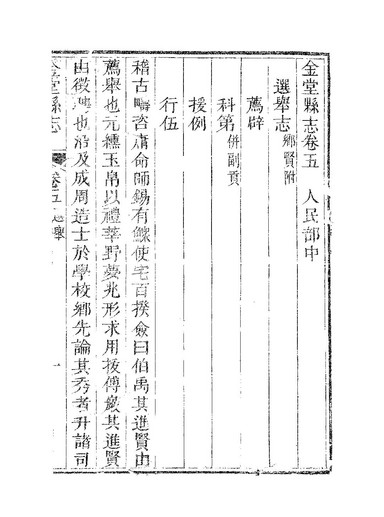 金堂縣志卷五　人民部中
選舉志鄉賢附
薦辟
科第併副貢
援例
行伍
稽古疇咨肅命師錫有鰥使宅百揆僉曰伯禹其進賢由
薦舉也元纁玉帛以禮莘野夢兆形求用拔傅巖其進賢
由徵也洎及成周造士於學校鄉先論其秀者升諸司
金堂縣志　卷五　選舉　一